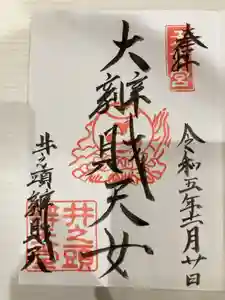 奉拝
令和五年
月廿日
大辨財天女
井之頭辨財天
井之頭